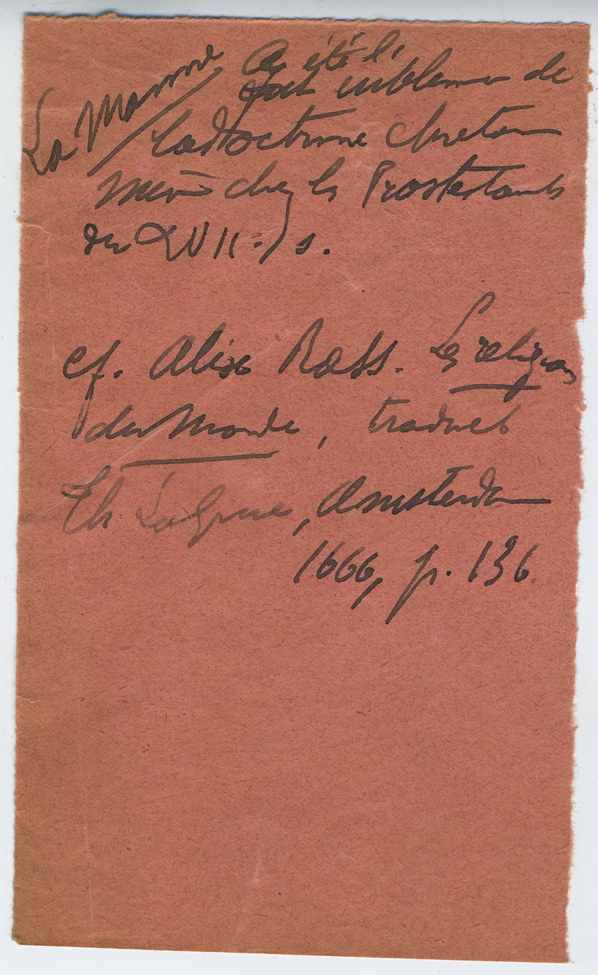 La Manne a été l'
emblème de
la doctrine chrétienne
même chez les Protestants
du XVIIe s.
cf. Alex Ross. Les religions
du Monde, traduct
Th La Grue, Amsterdam
1666, p. 136